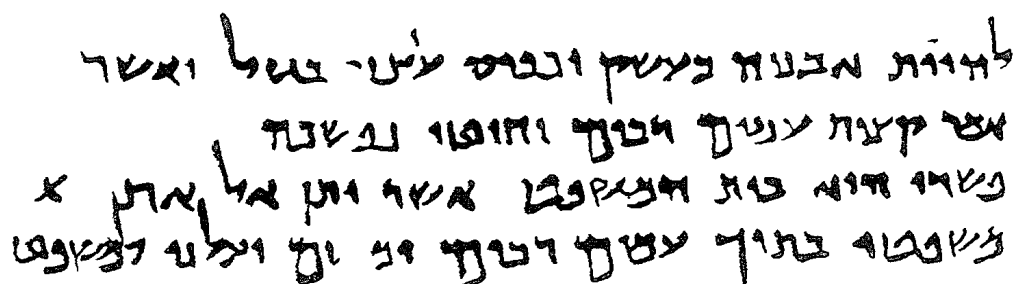 להיות אבניה בעשק וכפיס עיצה בגזל ואשר
אמר קצות עמים רבים וחוטי נפשכה
פשרו הוא בית המשפט אשר יתן אל את א
משפטו בתוך עמים רבים ומשם יעלנו למשפט